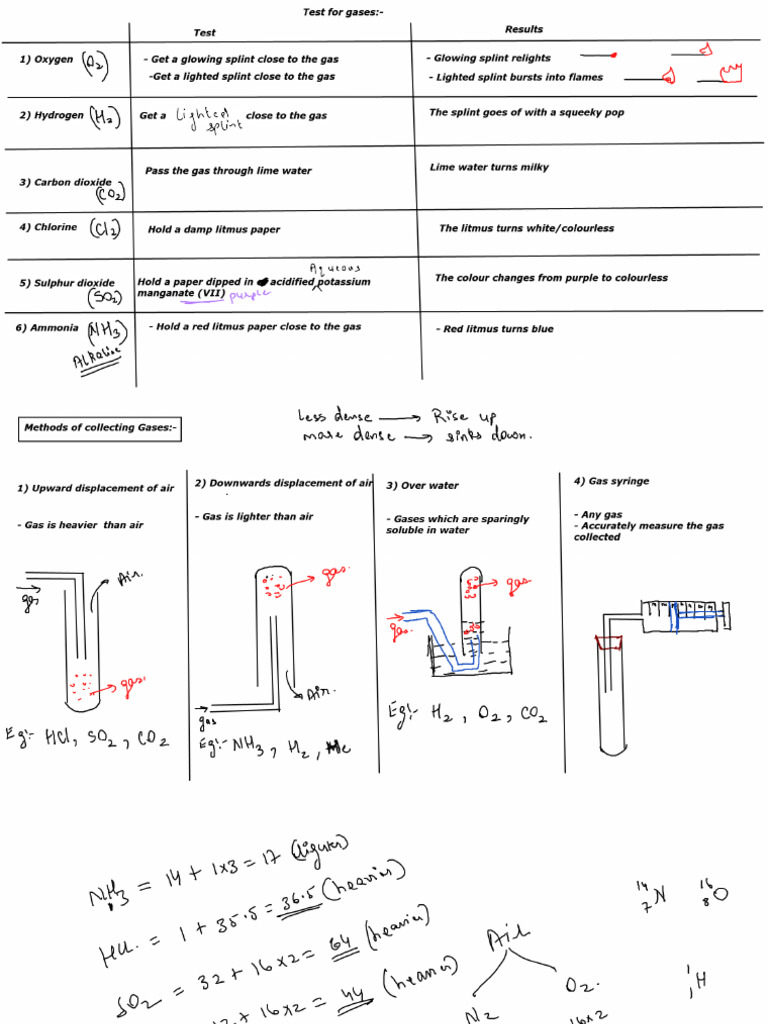 Test for gases:-
Test Results
1) Oxygen (O2) - Get a glowing splint close to the gas - Glowing splint relights
-Get a lighted splint close to the gas - Lighted splint bursts into flames
2) Hydrogen (H2) Get a Lighted splint close to the gas The splint goes of with a squeeky pop
3) Carbon dioxide (CO2) Pass the gas through lime water Lime water turns milky
4) Chlorine (Cl2) Hold a damp litmus paper The litmus turns white/colourless
5) Sulphur dioxide (SO2) Hold a paper dipped in acidified Aqueous potassium The colour changes from purple to colourless
manganate (VII) purple
6) Ammonia (NH3) - Hold a red litmus paper close to the gas - Red litmus turns blue
Alkaline
Methods of collecting Gases:-
Less dense → Rise up
more dense → sinks down.
1) Upward displacement of air
- Gas is heavier than air
gas
Air.
gas.
Eg:- HCl, SO2, CO2
2) Downwards displacement of air
- Gas is lighter than air
gas.
Air.
gas
Eg:- NH3, H2, He
3) Over water
- Gases which are sparingly
soluble in water
gas
gas.
Eg:- H2, O2, CO2
4) Gas syringe
- Any gas
- Accurately measure the gas
collected
NH3 = 14 + 1x3 = 17 (lighter)
HCl. = 1 + 35.5 = 36.5 (heavier)
SO2 = 32 + 16x2 = 64 (heavier)
+ 16x2 = 44 (heavier)
Air
N2 O2.
16x2
14 7 N 16 8 O
1 1 H